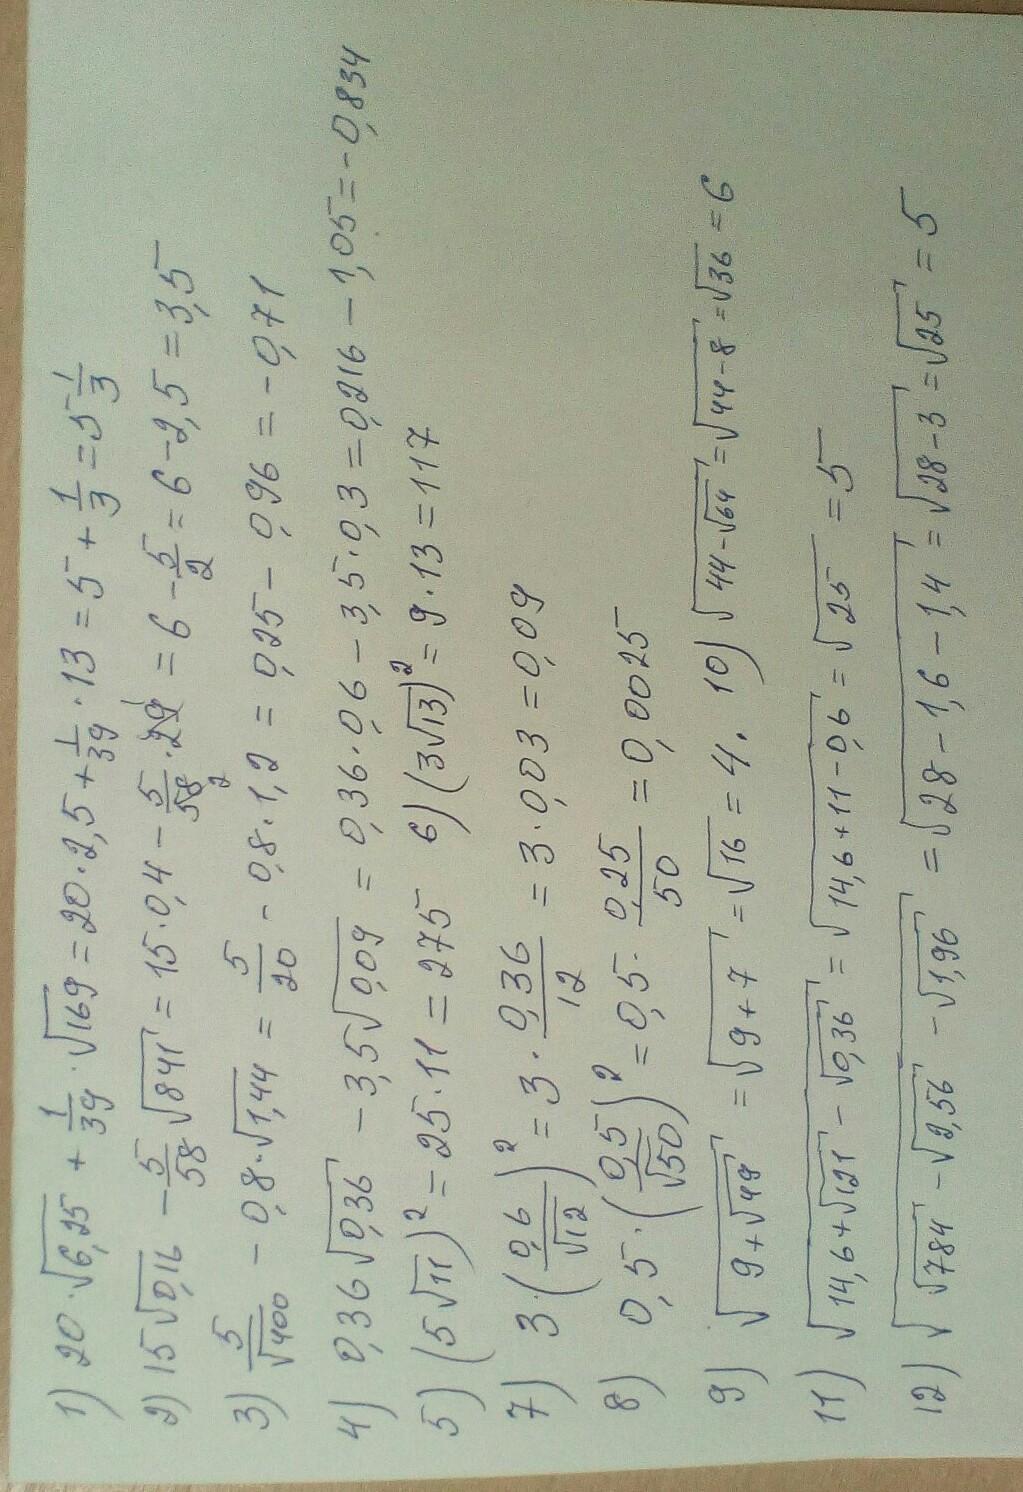 1) 20·√6,25 + 1/39·√169 = 20·2,5 + 1/39·13 = 5 + 1/3 = 5 1/3
2) 15√0,16 − 5/58 √841 = 15·0,4 − 5/58·29 = 6 − 5/2 = 6 − 2,5 = 3,5
3) 5/√400 − 0,8·√1,44 = 5/20 − 0,8·1,2 = 0,25 − 0,96 = −0,71
4) 0,36√0,36 − 3,5√0,09 = 0,36·0,6 − 3,5·0,3 = 0,216 − 1,05 = −0,834
5) (5√11)² = 25·11 = 275 6) (3√13)² = 9·13 = 117
7) 3·(0,6/√12)² = 3·0,36/12 = 3·0,03 = 0,09
8) 0,5·(0,5/√50)² = 0,5·0,25/50 = 0,0025
9) √(9+√49) = √(9+7) = √16 = 4. 10) √(44−√64) = √(44−8) = √36 = 6
11) √(14,6+√121 − √0,36) = √(14,6+11−0,6) = √25 = 5
12) √(√784 − √2,56 − √1,96) = √(28 − 1,6 − 1,4) = √(28−3) = √25 = 5